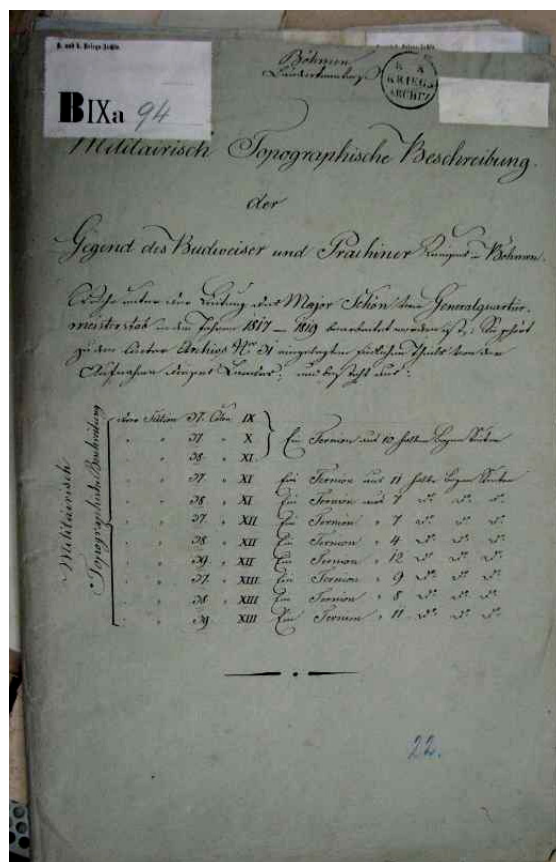 K. und k. Kriegs-Archiv.
BIXa 94
Böhmen
Landesbeschreibung
K K
KRIEGS
ARCHIV
Militairisch Topographische Beschreibung
der
Gegend des Budweiser und Prachiner Kreises in Böhmen.
Welche unter der Leitung des Major Schön vom Generalquartier-
meisterstab in den Jahren 1817 – 1819 bearbeitet worden ist; Sie gehört
zu dem unter Archivs Nro 31 eingelegten Theils von der
Aufnahme dieses Landes; und besteht aus:
Militairisch
Topographische Beschreibung
der Section 37. Colon IX
" " 37 " X
" " 38 " XI
Ein Ternion aus 10 halben Bogen
" " 37. " XI Ein Ternion aus 11 halbe Bogen
" " 38 " XI Ein Ternion aus 7 do. do.
" " 37. " XII Ein Ternion " 7 do. do.
" " 38 " XII Ein Ternion " 4 do. do.
" " 39 " XII Ein Ternion " 12 do. do.
" " 37 " XIII Ein Ternion " 9 do. do.
" " 38 " XIII Ein Ternion " 8 do. do.
" " 39 " XIII Ein Ternion " 11 do. do.
22.